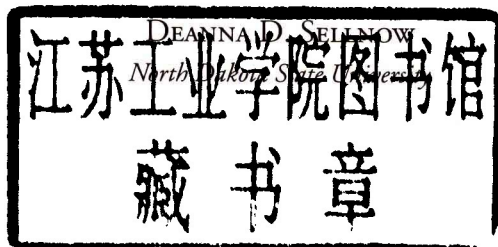 DEANNA D. SELLNOW
North Dakota State University
江苏工业学院图书馆
藏书章